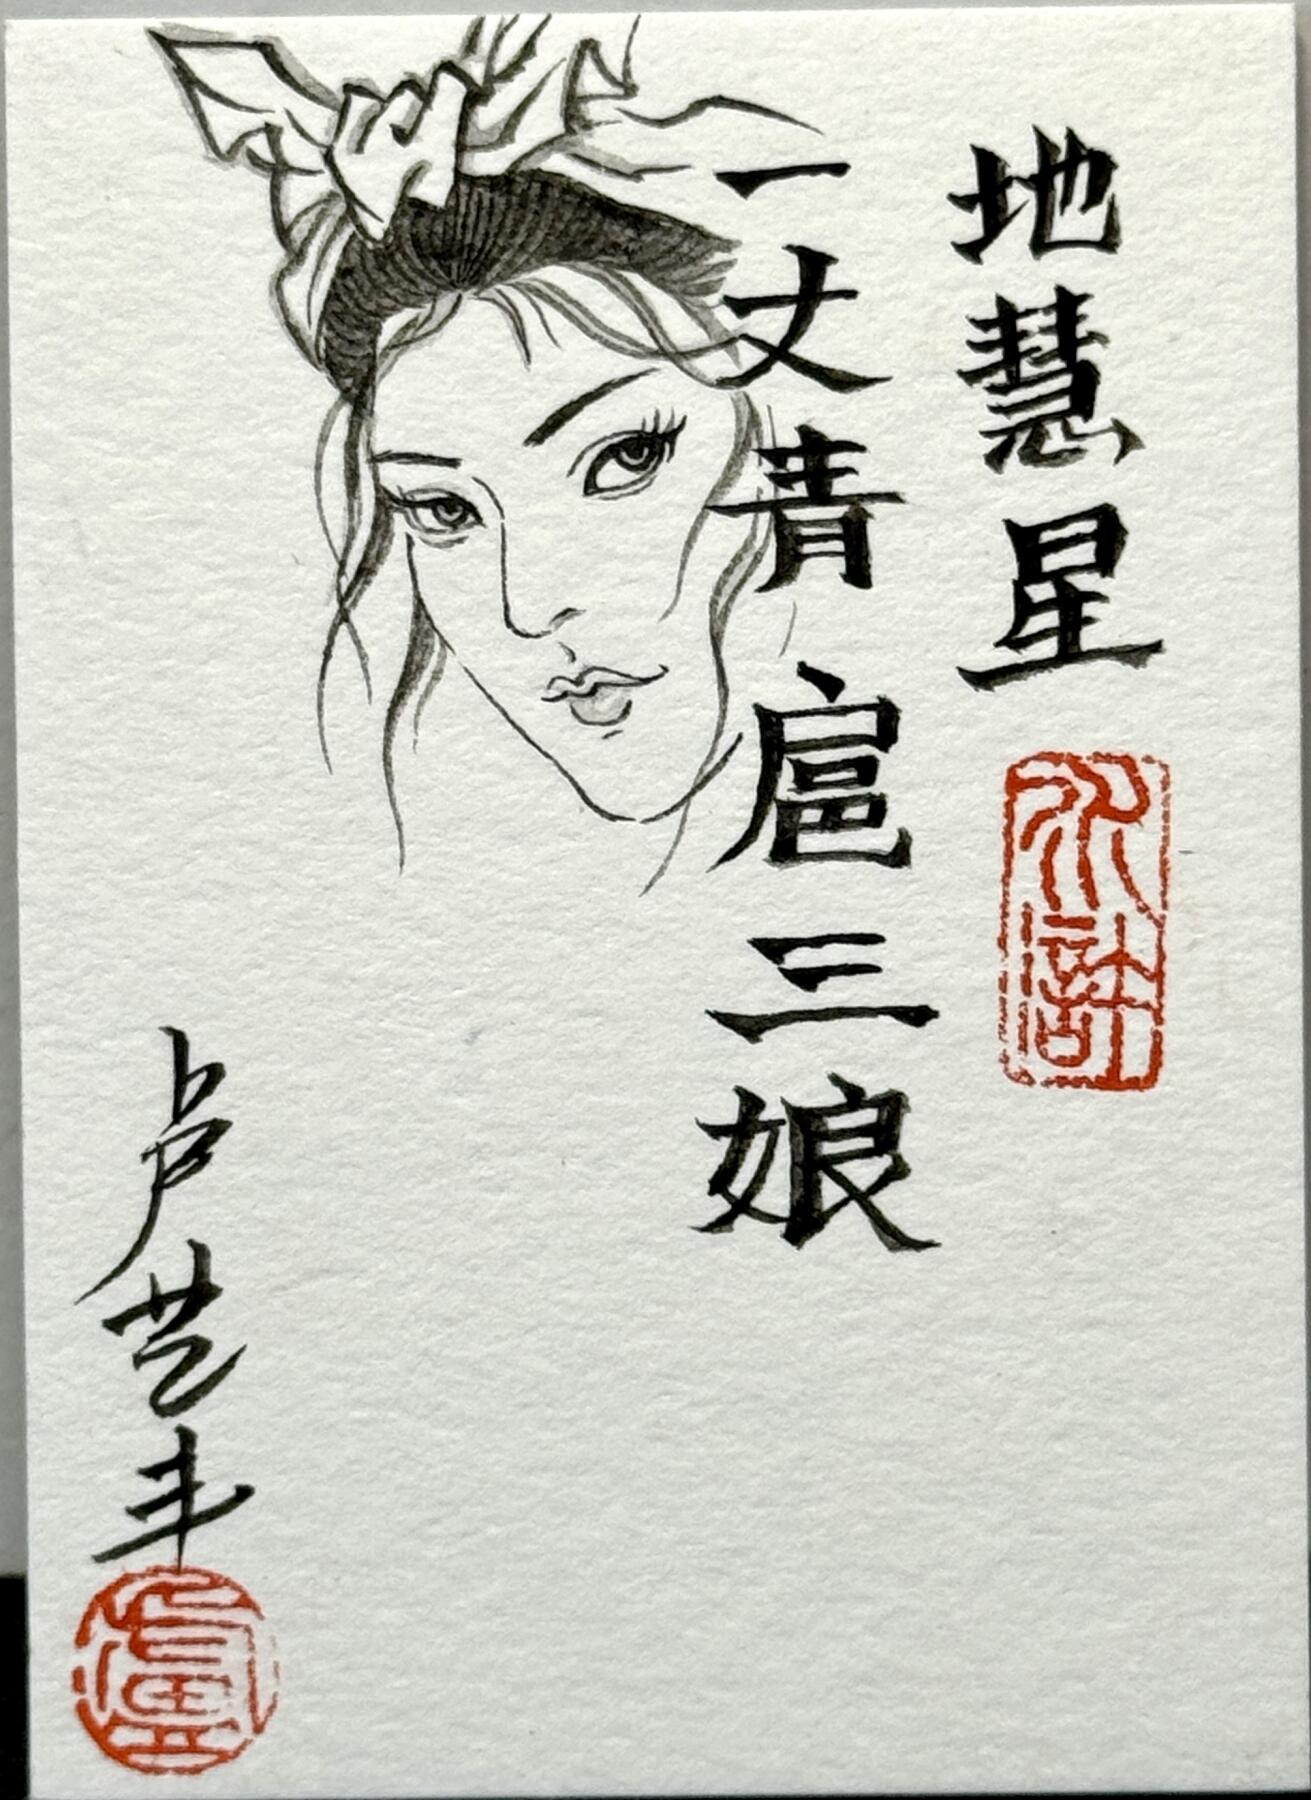 地慧星
水滸
一丈青 扈三娘
卢艺丰
盧